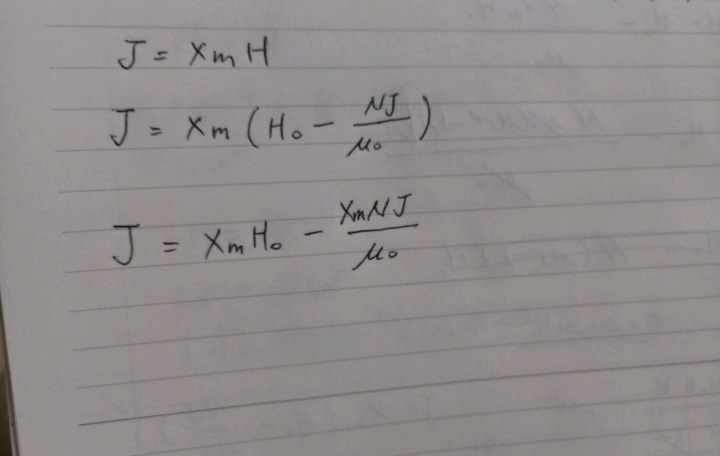 J = χm H
J = χm (H₀ − NJ/μ₀)
J = χm H₀ − χm NJ/μ₀